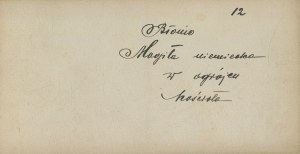 12
Błonie
Mogiła niemiecka
w ogrójcu
Kościoła